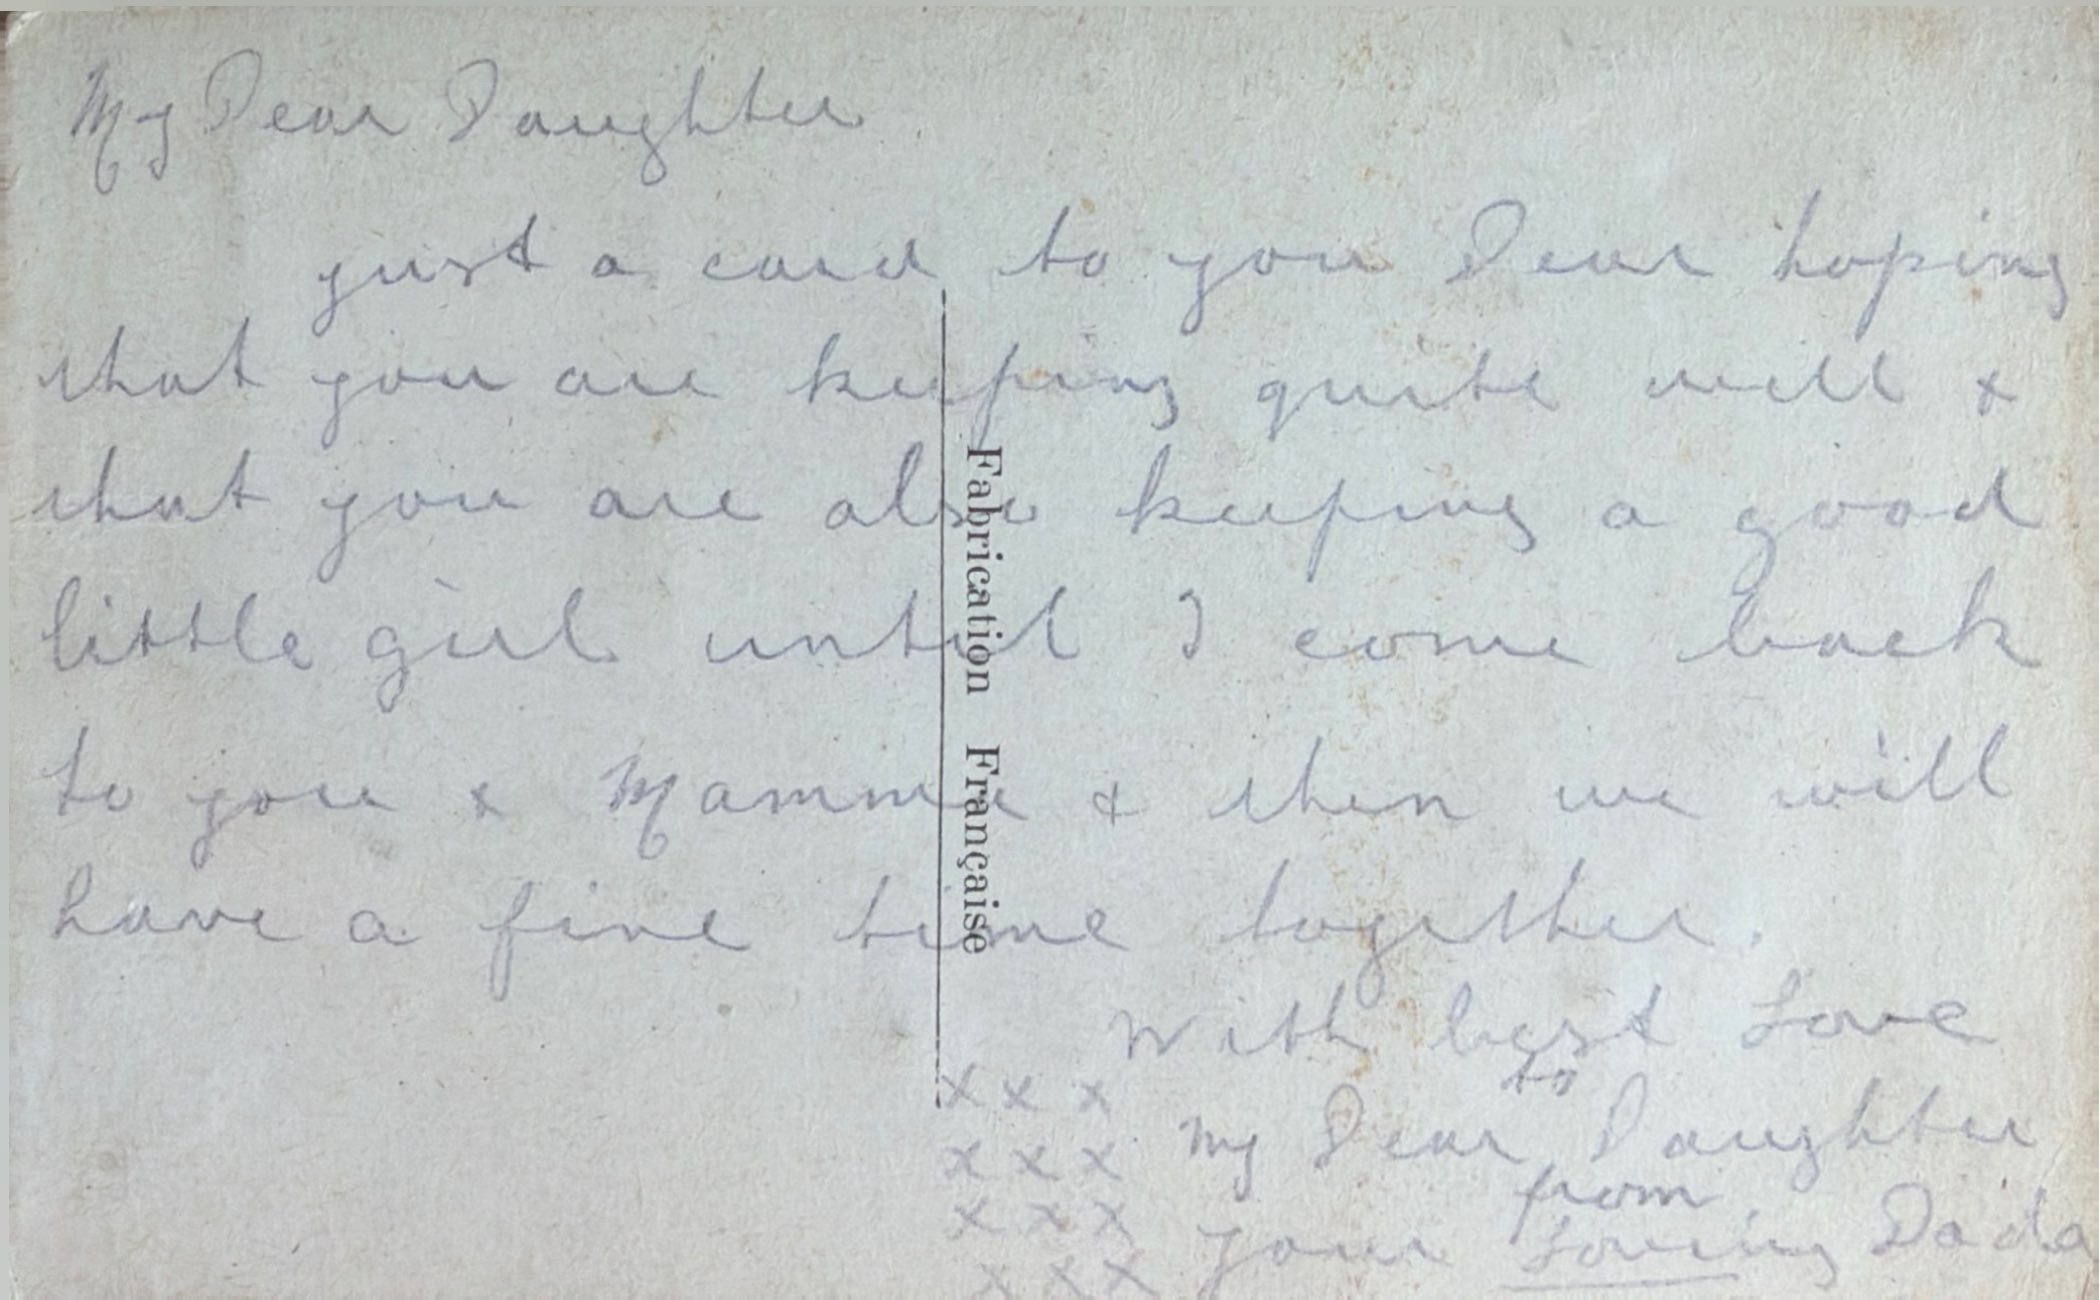 My Dear Daughter
just a card to you Dear hoping
that you are keeping quite well &
that you are also keeping a good
little girl until I come back
to you & Mamma & then we will
have a fine time together.
With best Love
to
my Dear Daughter
from
your Loving Dada
x x x
x x x
x x x
x x x
Fabrication Française